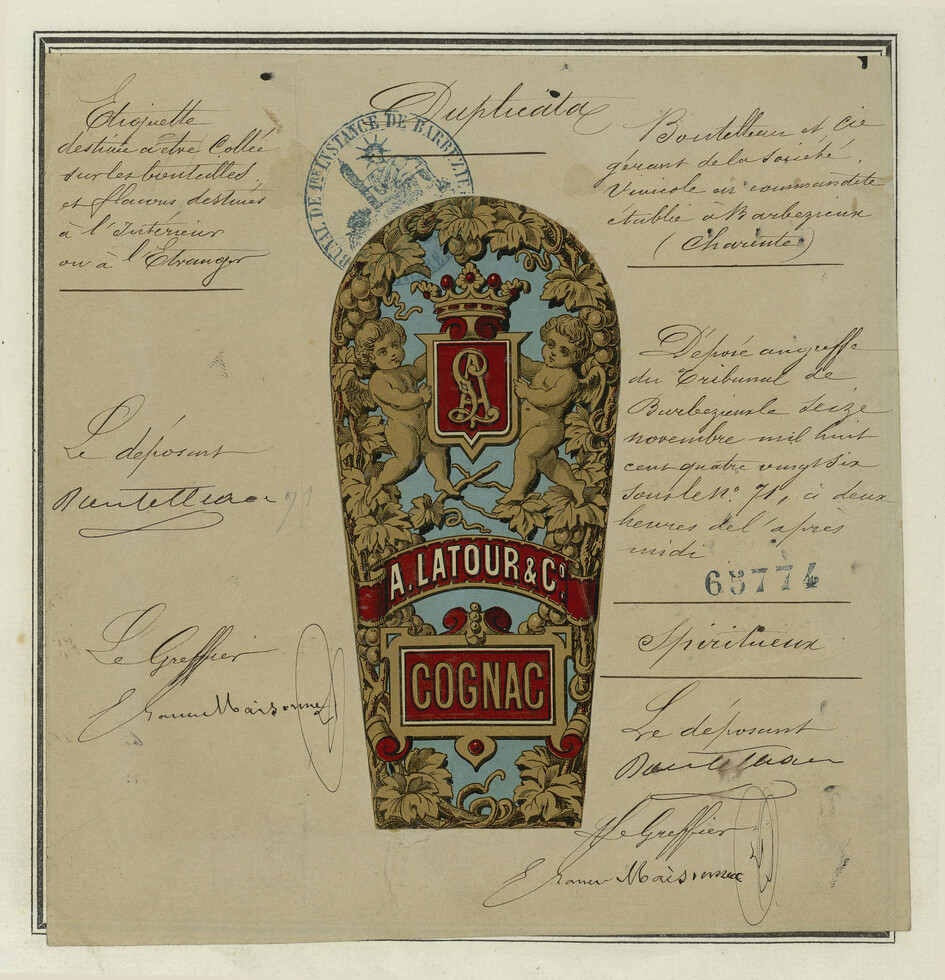 Duplicata
Etiquette
destinée a être Collée
sur les bouteilles
et flacons destinés
à l'Intérieur
ou à l'Etranger
Le déposant
Boutelleau
Le Greffier
Maisonneu
BUNAL DE 1RE INSTANCE DE BARBEZIE
A. LATOUR & Co.
COGNAC
Boutelleau et Cie
gérant de la Société
Vinicole en commandite
établie à Barbezieux
(Charente)
Déposé au greffe
du Tribunal de
Barbezieux le seize
novembre mil huit
cent quatre vingt six
sous le No. 71, à deux
heures de l'après
midi
65774
Spiritueux
Le déposant
Boutelleau
Le Greffier
Maisonneu